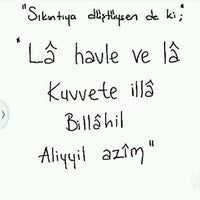 "Sıkıntıya düştüysen de ki;"
"Lâ havle ve lâ
Kuvvete illâ
Billâhil
Aliyyil azîm"